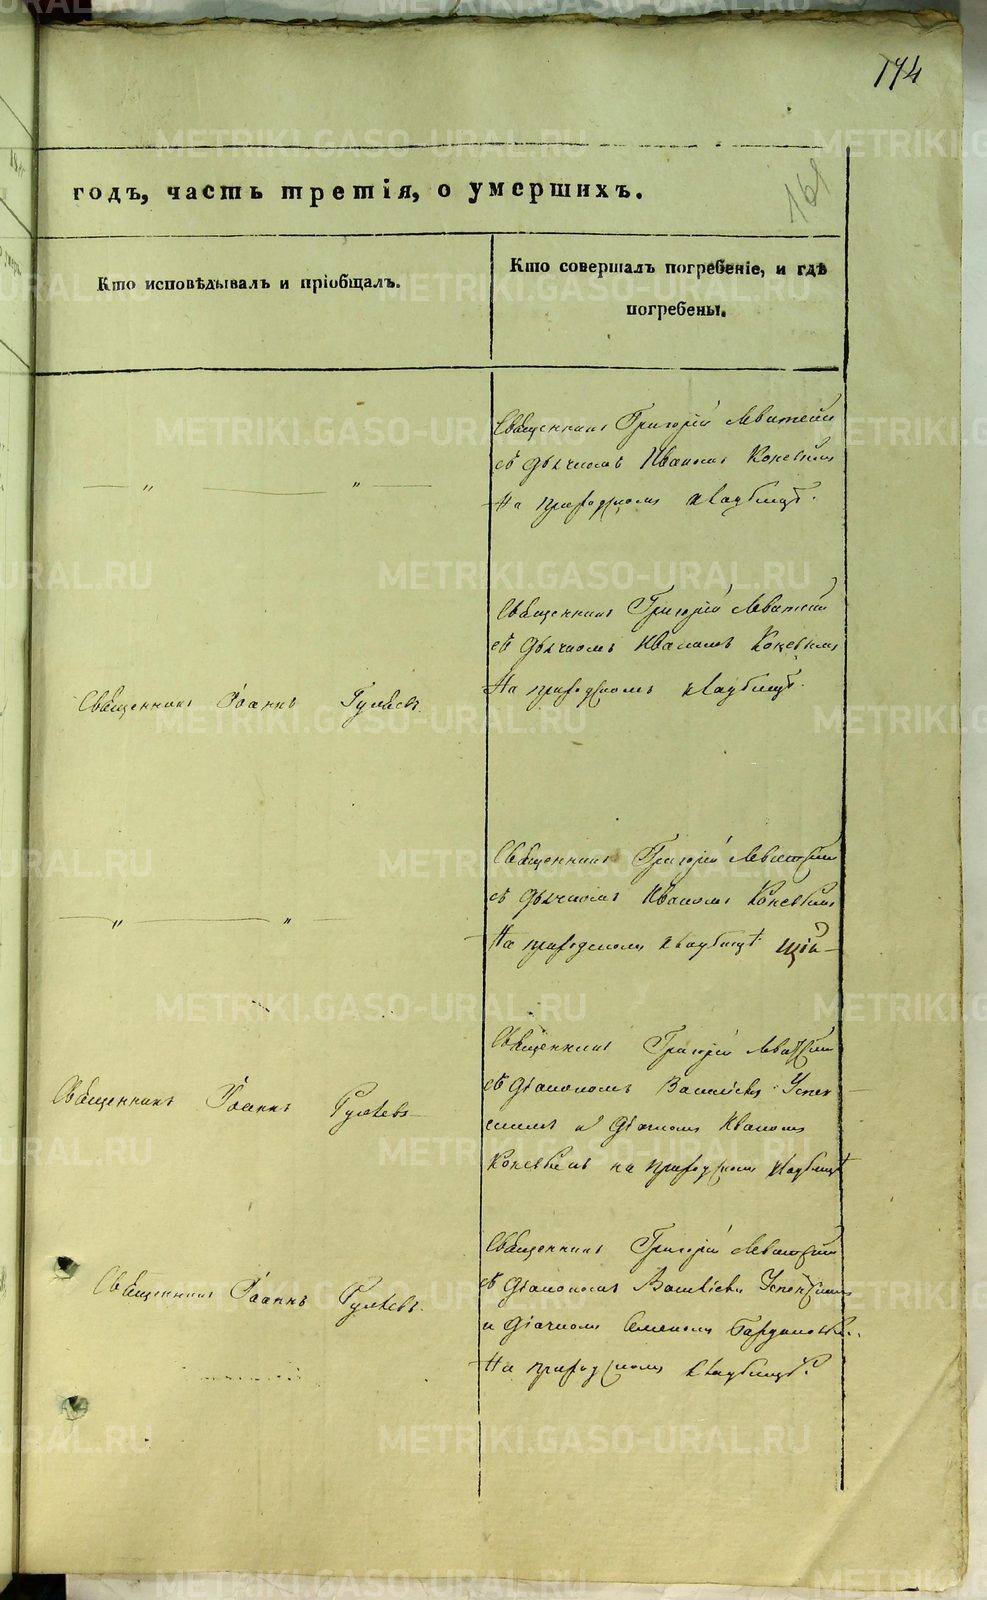 174
161
годъ, часть третія, о умершихъ.
Кто исповѣдывалъ и пріобщалъ.
Кто совершалъ погребеніе, и гдѣ
погребены.
Священникъ Григорій
съ Дьячкомъ Иваномъ Коневымъ
На приходскомъ кладбищѣ.
— „ — „ —
Священникъ Григорій
съ Дьячкомъ Иваномъ Коневымъ
На приходскомъ кладбищѣ.
Священникъ Іоаннъ Гуляевъ.
Священникъ Григорій
съ Дьячкомъ Иваномъ Коневымъ
На приходскомъ кладбищѣ
— „ — „ —
Священникъ Григорій
съ Діакономъ Василіемъ Успен
скимъ и Дьячкомъ Иваномъ
Коневымъ на приходскомъ кладбищѣ
Священникъ Іоаннъ Гуляевъ
Священникъ Григорій
съ Діакономъ Василіемъ Успенскимъ
и Дьячкомъ Семеномъ
На приходскомъ кладбищѣ.
Священникъ Іоаннъ Гуляевъ.
METRIKI.GASO-URAL.RU